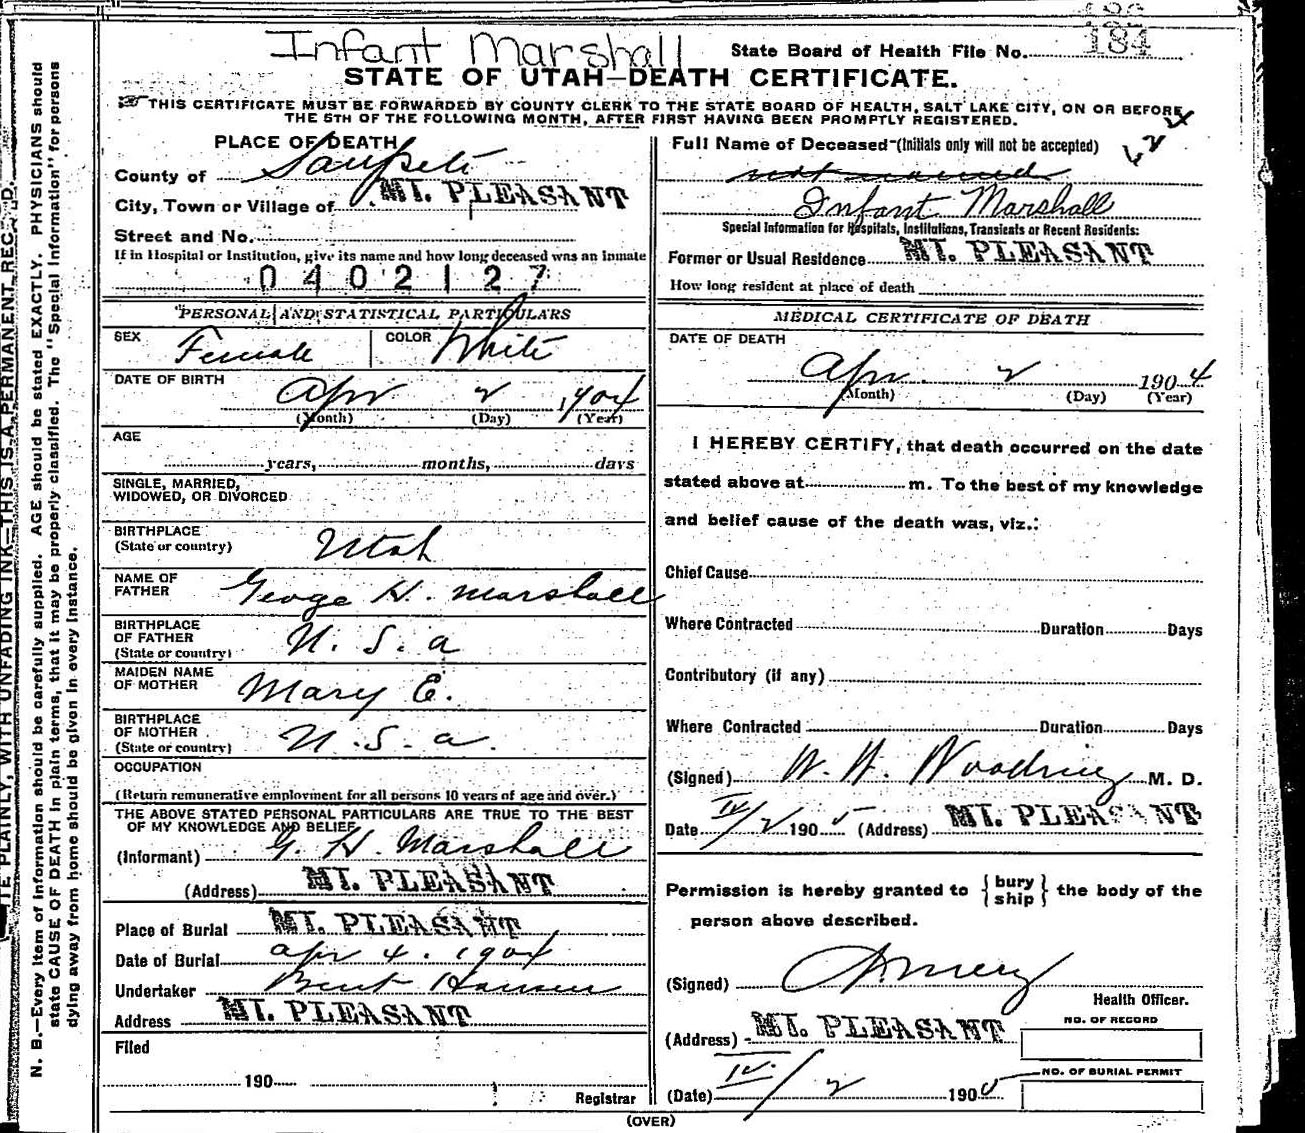 Infant Marshall
State Board of Health File No. 184
STATE OF UTAH—DEATH CERTIFICATE.
THIS CERTIFICATE MUST BE FORWARDED BY COUNTY CLERK TO THE STATE BOARD OF HEALTH, SALT LAKE CITY, ON OR BEFORE
THE 5TH OF THE FOLLOWING MONTH, AFTER FIRST HAVING BEEN PROMPTLY REGISTERED.
PLACE OF DEATH
County of Sanpete
City, Town or Village of MT. PLEASANT
Street and No.
If in Hospital or Institution, give its name and how long deceased was an inmate
0402127
PERSONAL AND STATISTICAL PARTICULARS
SEX Female COLOR White
DATE OF BIRTH
Apr 2 1904
(Month) (Day) (Year)
AGE
years, months, days
SINGLE, MARRIED,
WIDOWED, OR DIVORCED
BIRTHPLACE
(State or country) Utah
NAME OF
FATHER George H. Marshall
BIRTHPLACE
OF FATHER
(State or country) U. S. a
MAIDEN NAME
OF MOTHER Mary E.
BIRTHPLACE
OF MOTHER
(State or country) U. S. a.
OCCUPATION
(Return remunerative employment for all persons 10 years of age and over.)
THE ABOVE STATED PERSONAL PARTICULARS ARE TRUE TO THE BEST
OF MY KNOWLEDGE AND BELIEF
(Informant) G. H. Marshall
(Address) MT. PLEASANT
Place of Burial MT. PLEASANT
Date of Burial apr 4. 1904
Undertaker Hansen
Address MT. PLEASANT
Filed
190
Registrar
Full Name of Deceased (Initials only will not be accepted)
not named
Infant Marshall
Special Information for Hospitals, Institutions, Transients or Recent Residents:
Former or Usual Residence MT. PLEASANT
How long resident at place of death
MEDICAL CERTIFICATE OF DEATH
DATE OF DEATH
Apr. 2 1904
(Month) (Day) (Year)
I HEREBY CERTIFY, that death occurred on the date
stated above at m. To the best of my knowledge
and belief cause of the death was, viz.:
Chief Cause
Where Contracted Duration Days
Contributory (if any)
Where Contracted Duration Days
(Signed) W. H. Woodring M. D.
Date IV/2 190 (Address) MT. PLEASANT
Permission is hereby granted to {bury
ship} the body of the
person above described.
(Signed)
Health Officer.
(Address) MT. PLEASANT
NO. OF RECORD
(Date) IV/2 190
NO. OF BURIAL PERMIT
(OVER)
N. B.—Every item of information should be carefully supplied. AGE should be stated EXACTLY. PHYSICIANS should
state CAUSE OF DEATH in plain terms, that it may be properly classified. The "Special Information" for persons
dying away from home should be given in every instance.
PLAINLY, WITH UNFADING INK—THIS IS A PERMANENT